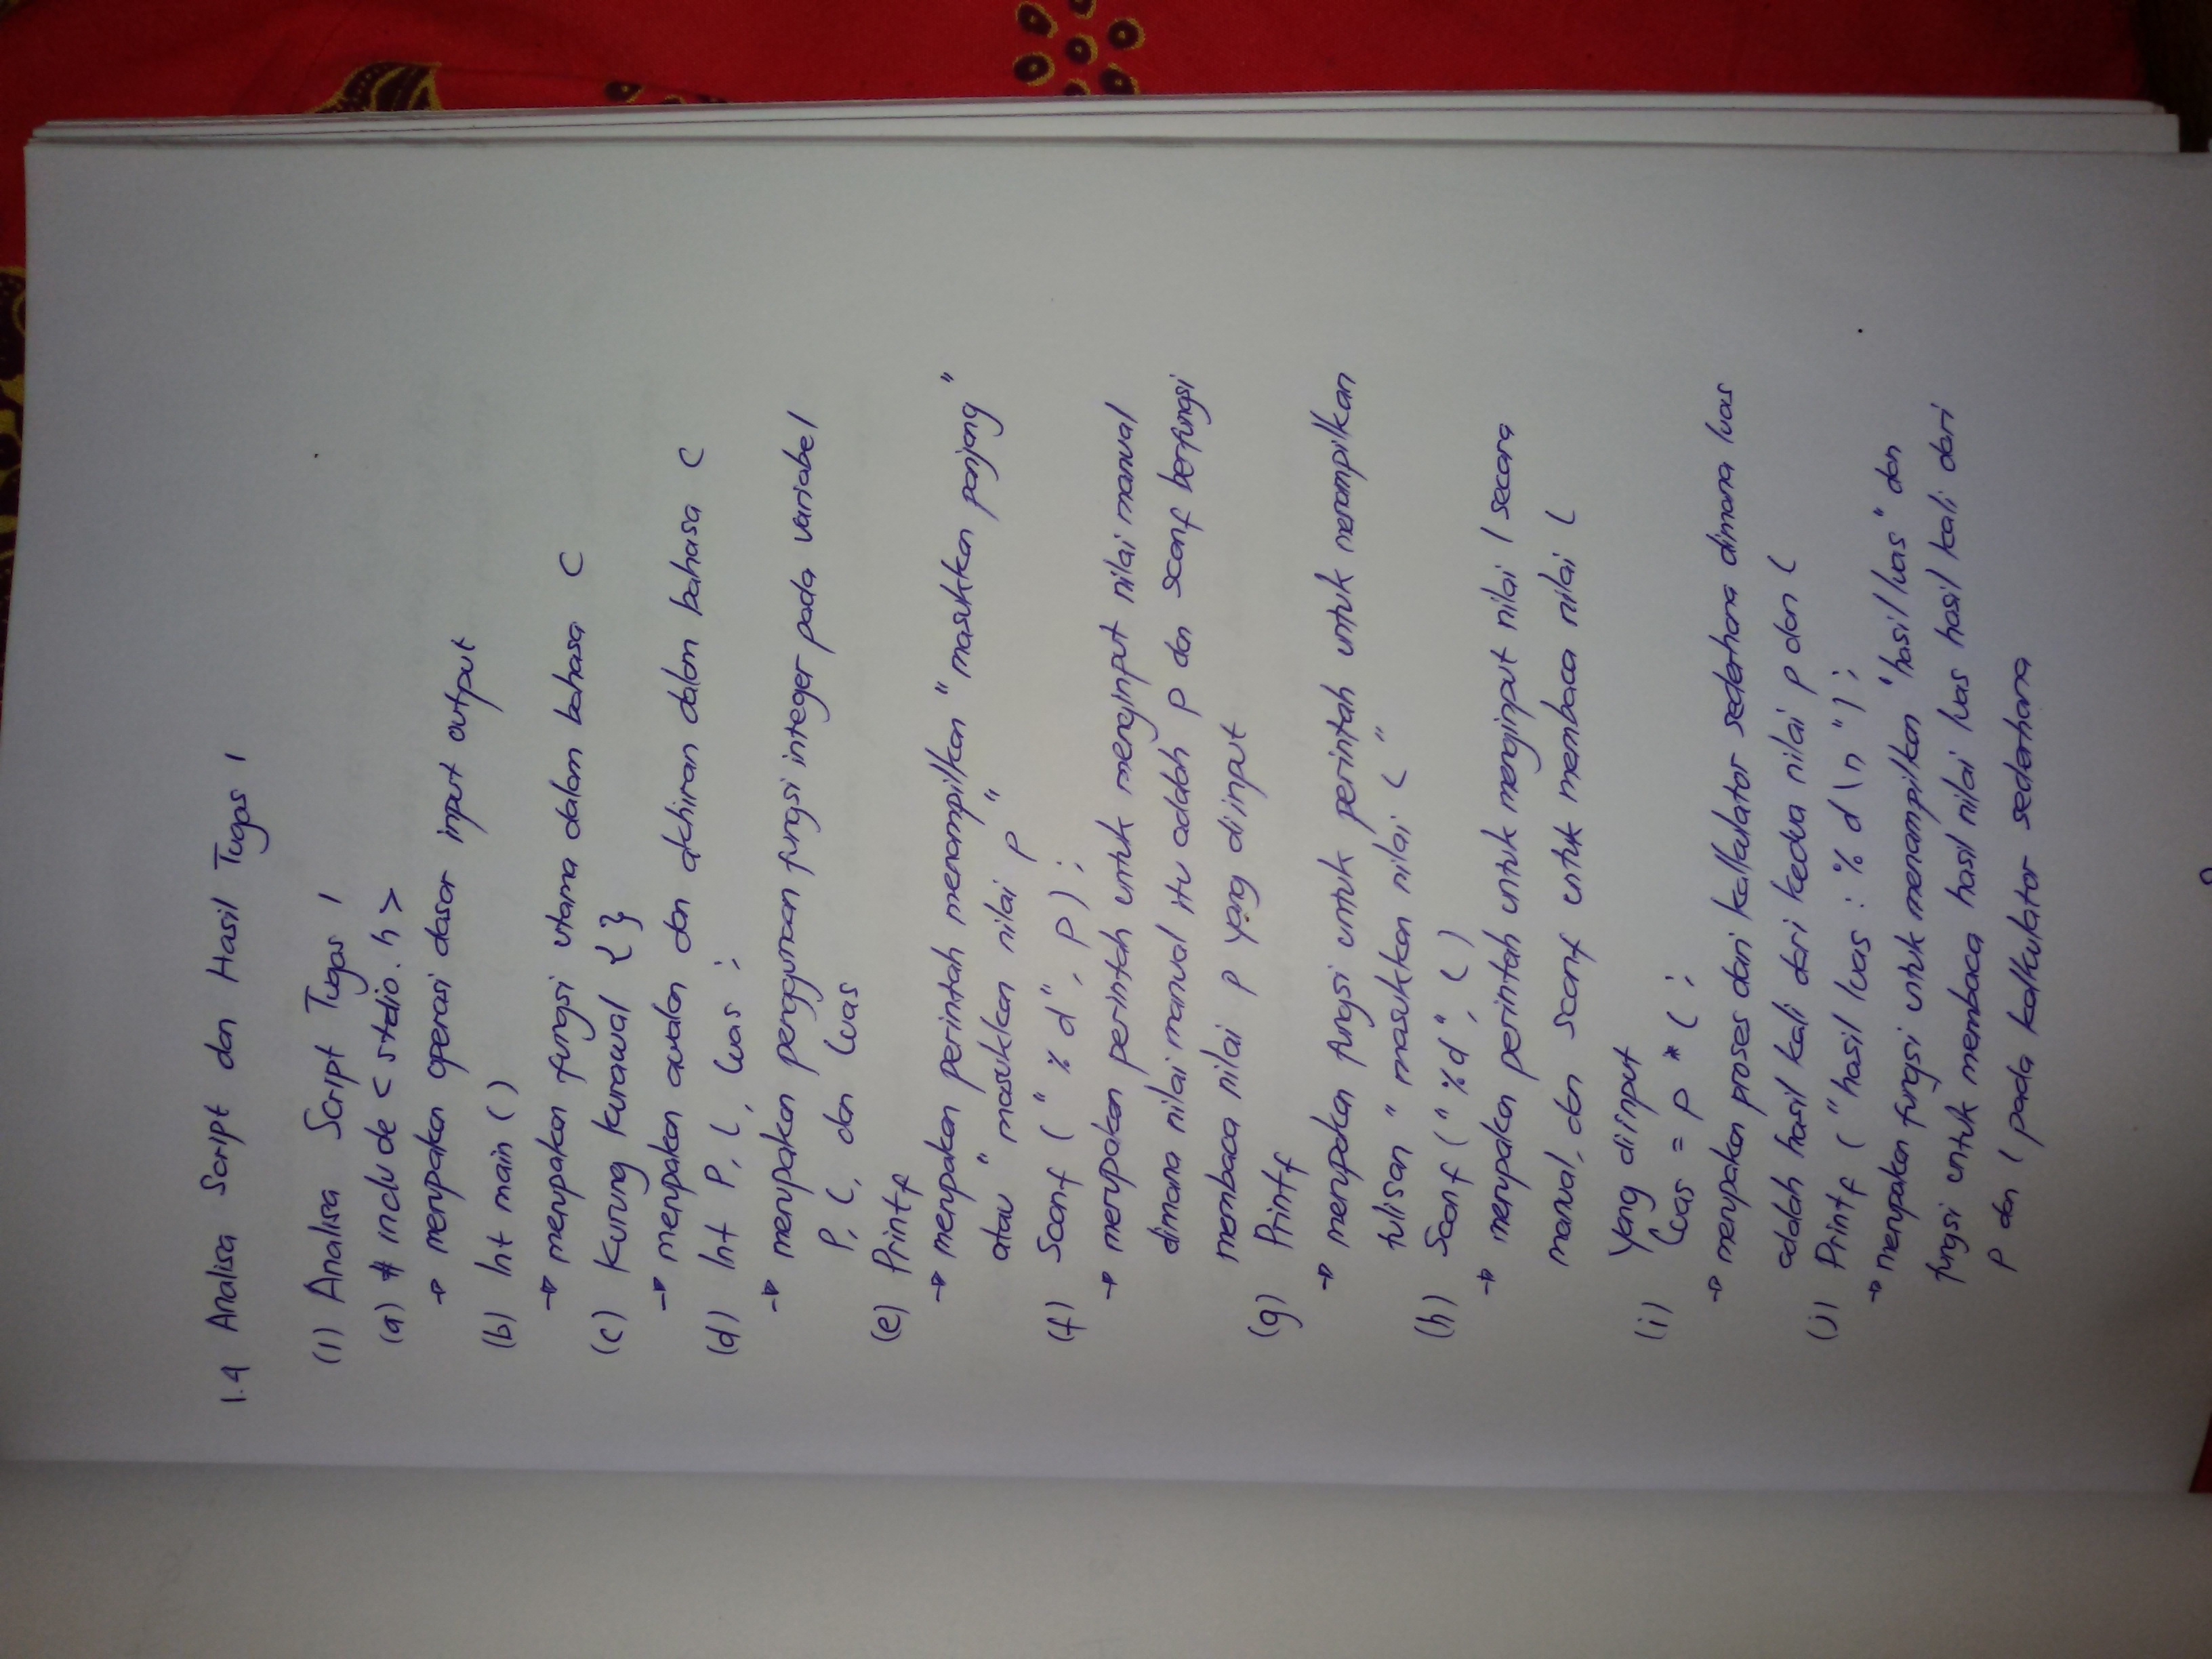 1.4 Analisa Script dan Hasil Tugas 1
(1) Analisa Script Tugas 1
(a) # include < stdio. h >
→ merupakan operasi dasar input output
(b) Int main ( )
→ merupakan fungsi utama dalam bahasa C
(c) Kurung kurawal { }
→ merupakan awalan dan akhiran dalam bahasa C
(d) Int P, l, luas ;
→ merupakan penggunaan fungsi integer pada variabel
P, l, dan luas
(e) Printf
→ merupakan perintah menampilkan "masukkan panjang"
atau "masukkan nilai p"
(f) Scanf ( " % d", p ) ;
→ merupakan perintah untuk menginput nilai manual
dimana nilai manual itu adalah p dan scanf berfungsi
membaca nilai p yang diinput
(g) Printf
→ merupakan fungsi untuk perintah untuk menampilkan
tulisan "masukkan nilai l"
(h) Scanf (" %d", l )
→ merupakan perintah untuk menginput nilai l secara
manual, dan scanf untuk membaca nilai l
yang diinput
(i) luas = p * l ;
→ merupakan proses dari kalkulator sederhana dimana luas
adalah hasil kali dari kedua nilai p dan l
(j) Printf ( "hasil luas : % d \n " ) ;
→ merupakan fungsi untuk menampilkan "hasil luas" dan
fungsi untuk membaca hasil nilai luas hasil kali dari
P dan l pada kalkulator sederhana